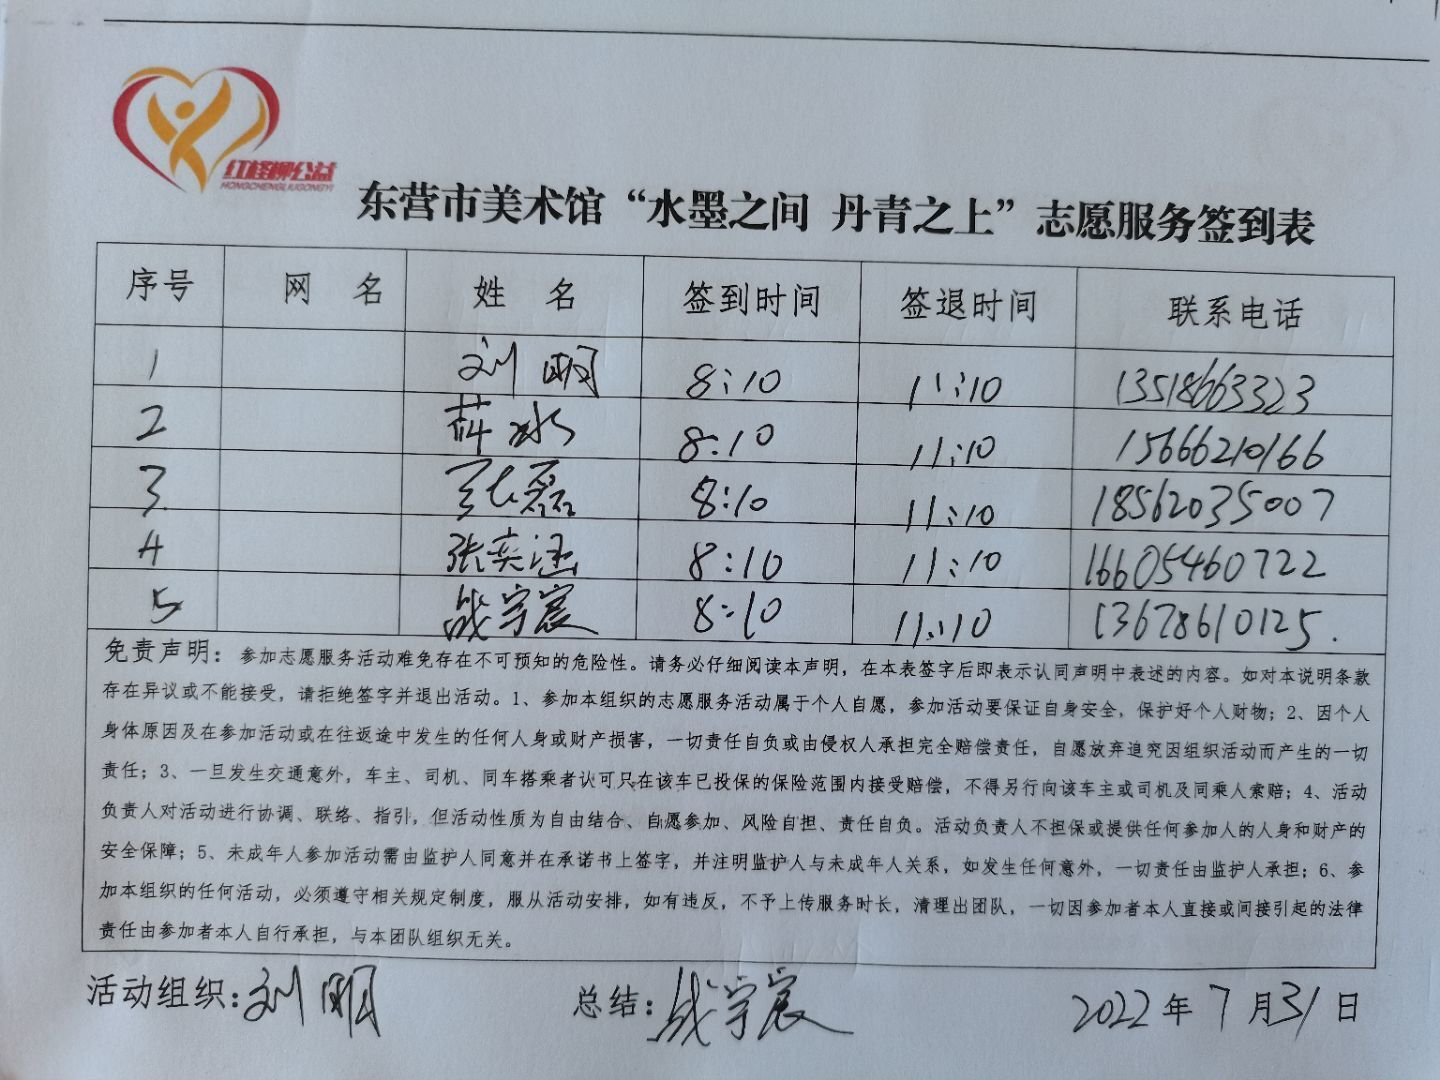 红柽柳公益
HONGCHENGLIUGONGYI
东营市美术馆“水墨之间 丹青之上”志愿服务签到表
序号 网名 姓名 签到时间 签退时间 联系电话
1 刘明 8:10 11:10 13518663323
2 8:10 11:10 15666210166
3 张磊 8:10 11:10 18562035007
4 张奕涵 8:10 11:10 16605460722
5 战宇宸 8:10 11:10 13678610125.
免责声明：参加志愿服务活动难免存在不可预知的危险性。请务必仔细阅读本声明，在本表签字后即表示认同声明中表述的内容。如对本说明条款
存在异议或不能接受，请拒绝签字并退出活动。1、参加本组织的志愿服务活动属于个人自愿，参加活动要保证自身安全，保护好个人财物；2、因个人
身体原因及在参加活动或在往返途中发生的任何人身或财产损害，一切责任自负或由侵权人承担完全赔偿责任，自愿放弃追究因组织活动而产生的一切
责任；3、一旦发生交通意外，车主、司机、同车搭乘者认可只在该车已投保的保险范围内接受赔偿，不得另行向该车主或司机及同乘人索赔；4、活动
负责人对活动进行协调、联络、指引，但活动性质为自由结合、自愿参加、风险自担、责任自负。活动负责人不担保或提供任何参加人的人身和财产的
安全保障；5、未成年人参加活动需由监护人同意并在承诺书上签字，并注明监护人与未成年人关系，如发生任何意外，一切责任由监护人承担；6、参
加本组织的任何活动，必须遵守相关规定制度，服从活动安排，如有违反，不予上传服务时长，清理出团队，一切因参加者本人直接或间接引起的法律
责任由参加者本人自行承担，与本团队组织无关。
活动组织：刘明 总结：战宇宸 2022年7月31日